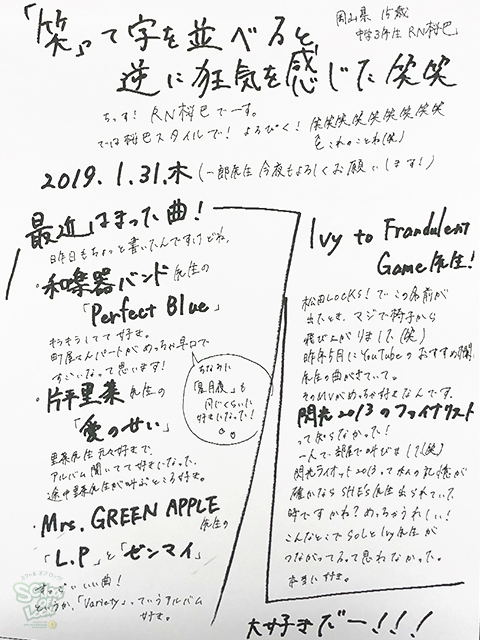 「笑」って字を並べると、
逆に狂気を感じた笑笑
岡山県 15歳
中学3年生 RN桜巴
ちっす! RN桜巴でーす。
では桜巴スタイルで! よろぴく! 笑笑笑笑笑笑笑笑
2019.1.31.木 (一郎先生 今夜もよろしくお願いします!)
最近はまった曲!
昨日もちょっと書いたんですけどね。
・和楽器バンド先生の
「Perfect Blue」
キラキラしてて好き。
町屋さんパートがめっちゃ早口で
すごいなって思います!
ちなみに
「夏月夜」も
同じくらいに
好きになった!
・片平里菜先生の
「愛のせい」
里菜先生元々好きで、
アルバム聞いてて好きになった。
途中里菜先生が叫ぶところ好き。
・Mrs. GREEN APPLE
先生の
「L.P」と「ゼンマイ」
すっごいいい曲!
というか、「Variety」っていうアルバム
好き。
Ivy to Fraudulent
Game先生!
松田LOCKS!でこの名前が
出たとき、マジで椅子から
飛び上がりました(笑)
昨年5月にYouTubeのおすすめ欄
先生の曲がきていて。
そのMVがめっちゃ好きなんです。
閃光2013のファイナリスト
って知らなかった!
一人で部屋で叫びました(笑)
閃光ライオット2013って私の記憶が
確かならSHE'S先生出られていた
時ですかね?めっちゃうれしい!
こんなとこでSOLとIvy先生が
つながってるって思わなかった。
本当に好き。
大好きだー!!!